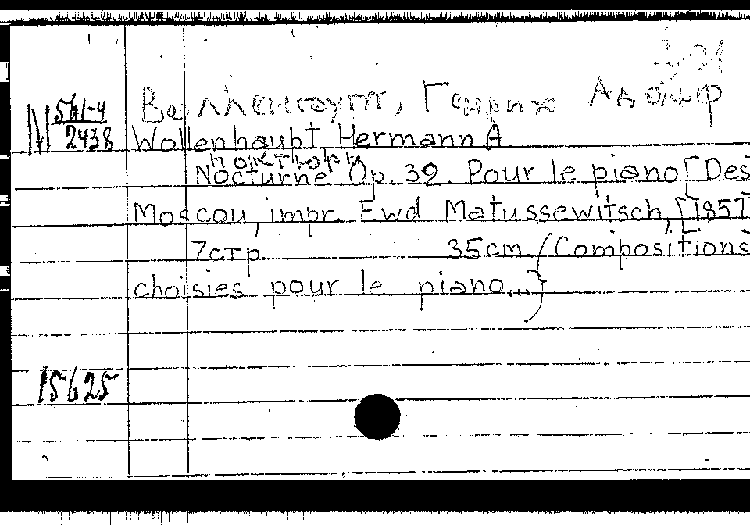 N 561-4
2438
Wollenhaupt Hermann A.
ноктюрн
Nocturne Op. 39. Pour le piano [Des
Moscou, impr. Ewd Matussewitsch, [1857
7стр. 35cm (Compositions
choisies pour le piano...)
15625